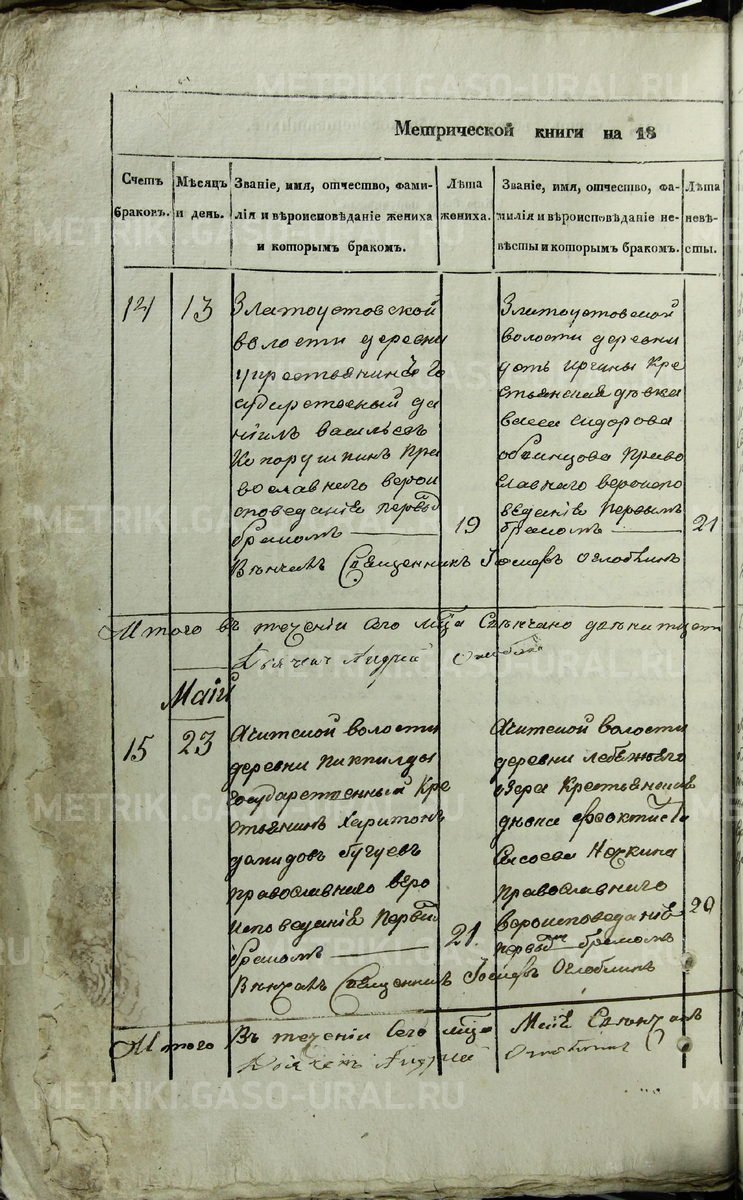 Метрической книги на 18
Счетъ браковъ.
Мѣсяцъ и день.
Званіе, имя, отчество, фами-
лія и вѣроисповѣданіе жениха
и которымъ бракомъ.
Лѣта жениха.
Званіе, имя, отчество, фа-
милія и вѣроисповѣданіе не-
вѣсты и которымъ бракомъ.
Лѣта невѣ-
сты.
14
13
Златоустовской
волости деревни
сударственный да
ніилъ васильевъ
Копорушкинъ пра
вославнаго верои
споведаніе первы
бракомъ
19
Златоустовской
волости деревни
Кре
стьянская девка
васса сидорова
право
славнаго вероиспо
веданіе первымъ
бракомъ
21
Венчалъ Священникъ Іосифъ Оглоблинъ
Итого въ теченіи сего мца Свенчано
Дьячекъ Андрей
Маій
15
23
Ачитской волости
деревни
государственный Кре
стьянинъ Харитонъ
православнаго веро
исповеданіе первы
бракомъ
21
Ачитской волости
деревни лебяжьего
озера Крестьянская
девка феоктиста
Сысоева
православнаго
вероисповеданіе
первымъ бракомъ
20
Венчалъ Священникъ Іосифъ Оглоблинъ
Итого Въ теченіи Сего мца Маіе
Дьячекъ Андрей
METRIKI.GASO-URAL.RU